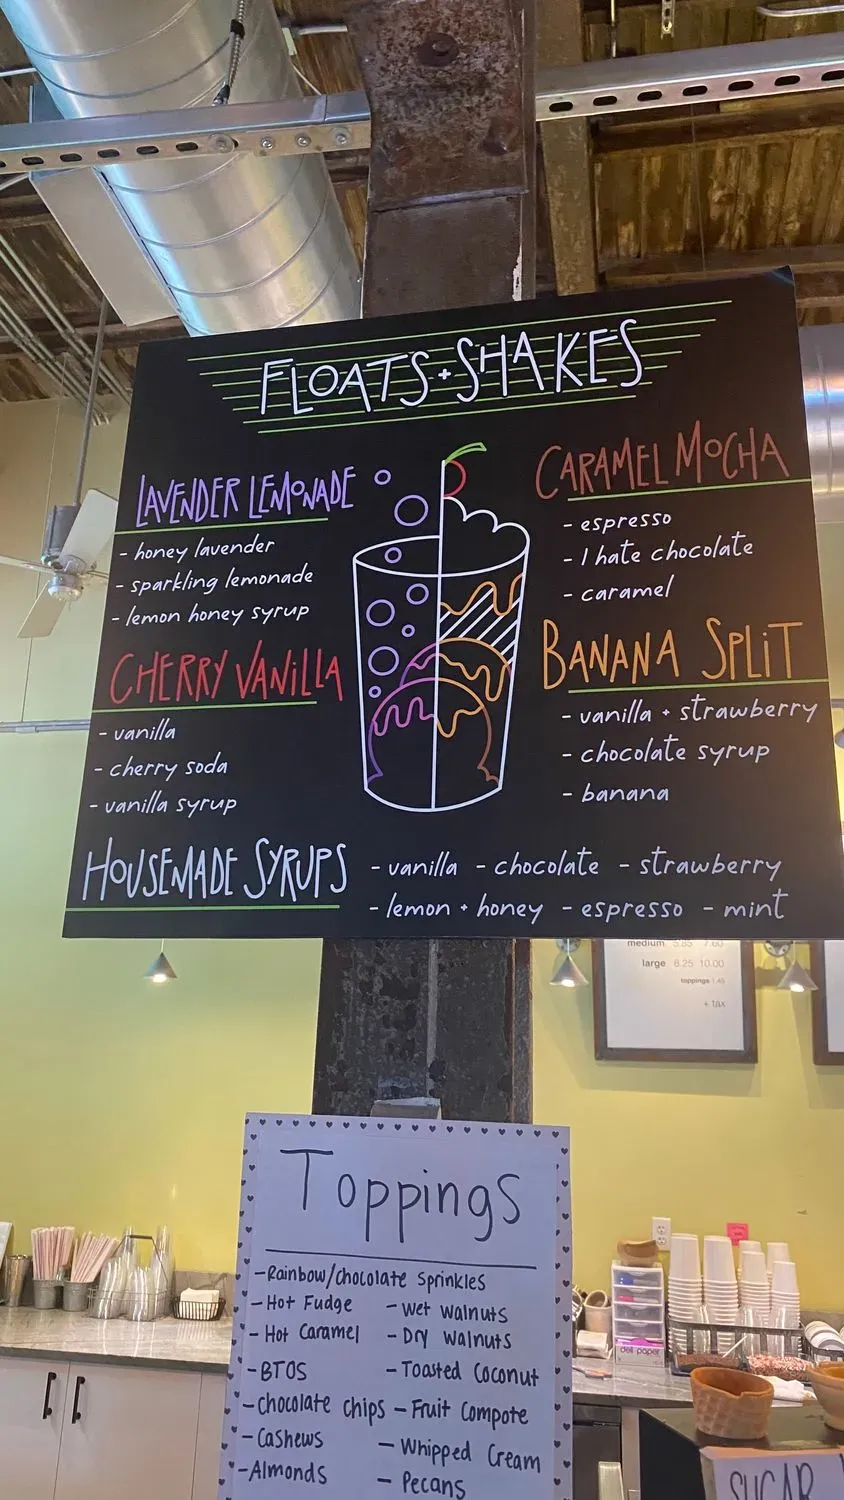 FLOATS + SHAKES
LAVENDER LEMONADE
- honey lavender
- sparkling lemonade
- lemon honey syrup
CHERRY VANILLA
- vanilla
- cherry soda
- vanilla syrup
CARAMEL MOCHA
- espresso
- I hate chocolate
- caramel
BANANA SPLIT
- vanilla + strawberry
- chocolate syrup
- banana
HOUSEMADE SYRUPS
- vanilla - chocolate - strawberry
- lemon + honey - espresso - mint
medium 5.85 7.60
large 6.25 10.00
toppings 1.45
+ tax
Toppings
- Rainbow/Chocolate Sprinkles
- Hot Fudge - Wet Walnuts
- Hot Caramel - Dry Walnuts
- BTOS - Toasted Coconut
- Chocolate Chips - Fruit Compote
- Cashews - Whipped Cream
- Almonds - Pecans
deli paper
SUGAR